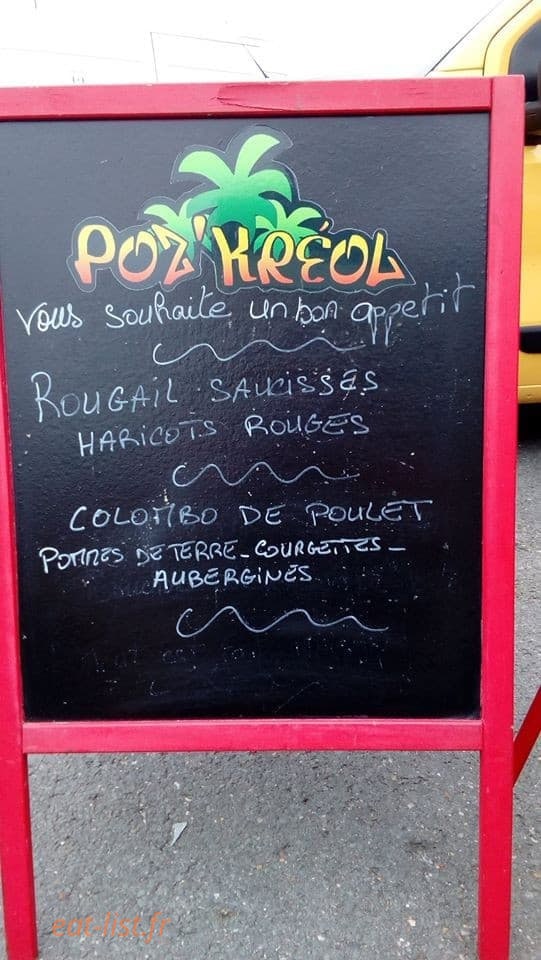 POZ'KRÉOL
Vous souhaite un bon appetit
ROUGAIL SAUCISSES
HARICOTS ROUGES
COLOMBO DE POULET
POMMES DE TERRE - COURGETTES -
AUBERGINES
eat-list.fr